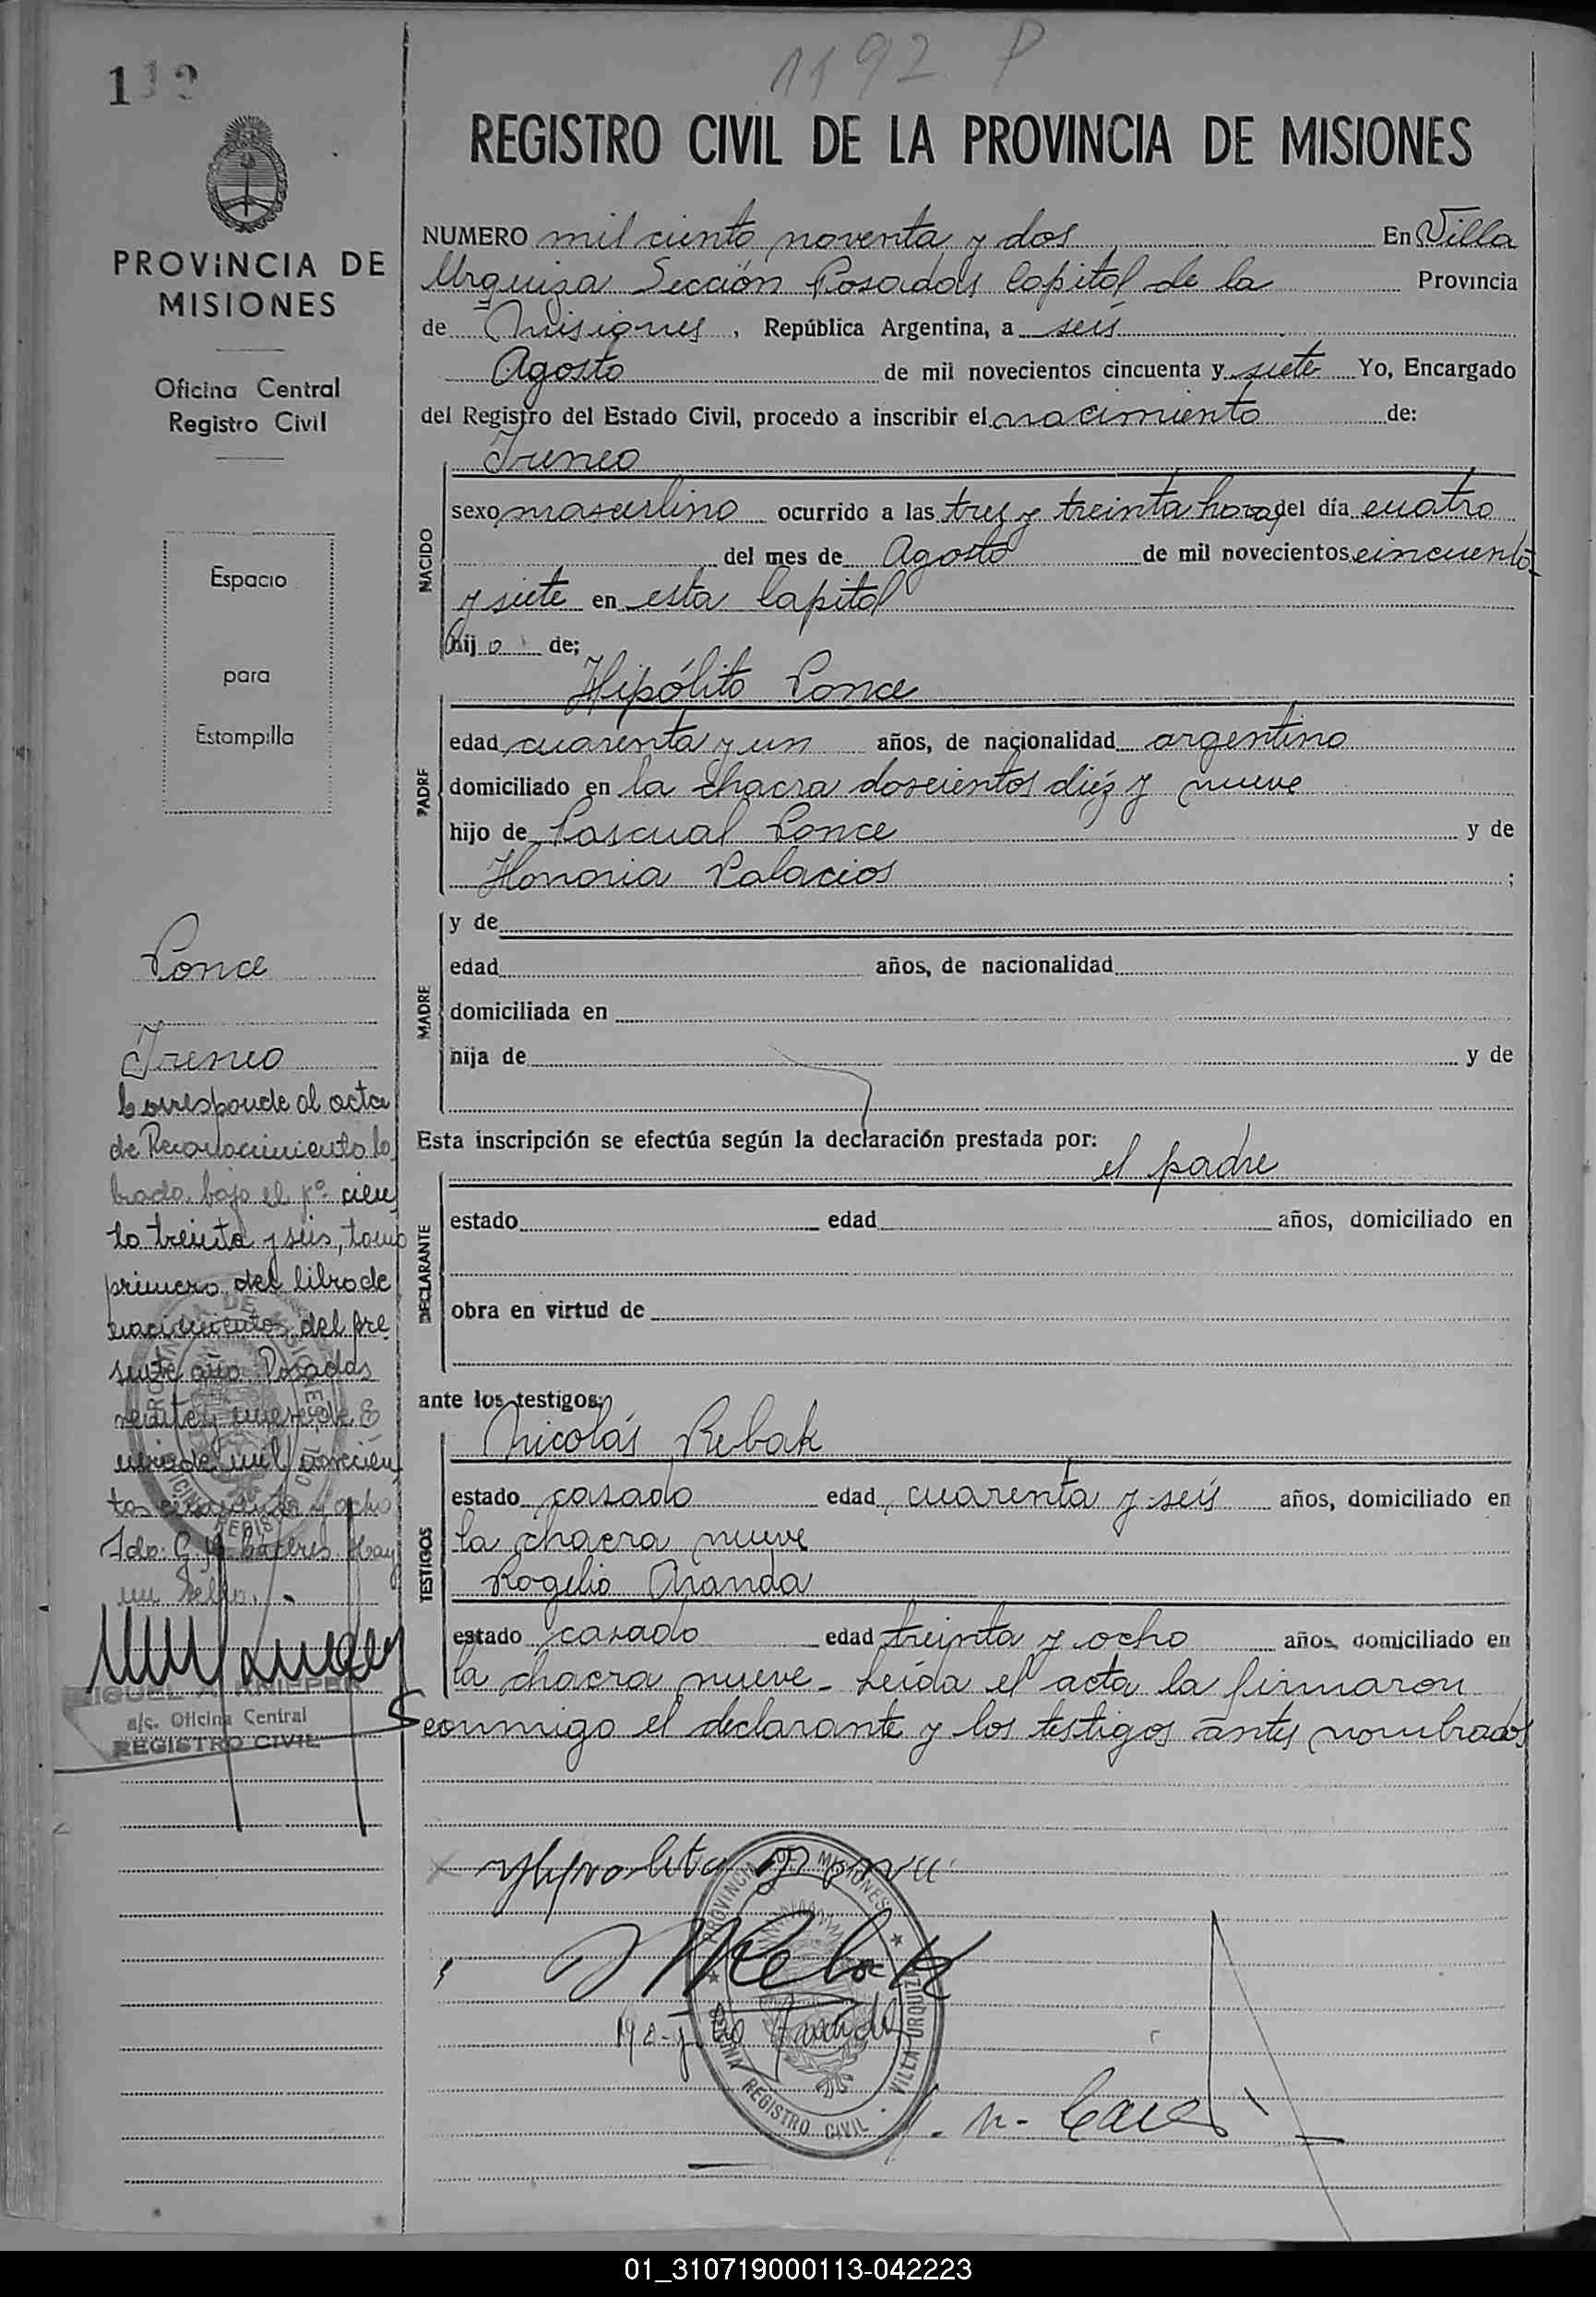 1192 P
PROVINCIA DE
MISIONES
Oficina Central
Registro Civil
Espacio
para
Estampilla
Ponce
Ireneo
Corresponde al acta
de Reconocimiento la
brada bajo el nº cien
to treinta y seis, tomo
primero del libro de
nacimientos del pre
sente año. Posadas
veinte y nueve de E
nero de mil novecien
tos cincuenta y ocho
Fdo: G. Hay
un sello.
MIGUEL A.
a/c. Oficina Central
REGISTRO CIVIL
REGISTRO CIVIL DE LA PROVINCIA DE MISIONES
NUMERO mil ciento noventa y dos En Villa
Urquiza Sección Posadas Capital de la Provincia
de Misiones, República Argentina, a seis
Agosto de mil novecientos cincuenta y siete Yo, Encargado
del Registro del Estado Civil, procedo a inscribir el nacimiento de:
Ireneo
NACIDO
sexo masculino ocurrido a las tres y treinta horas del día cuatro
del mes de Agosto de mil novecientos cincuenta
y siete en esta Capital
hijo de;
Hipólito Ponce
PADRE
edad cuarenta y un años, de nacionalidad argentino
domiciliado en la chacra doscientos diéz y nueve
hijo de Pascual Ponce y de
Honoria Palacios ;
MADRE
y de
edad años, de nacionalidad
domiciliada en
hija de y de
Esta inscripción se efectúa según la declaración prestada por:
el padre
DECLARANTE
estado edad años, domiciliado en
obra en virtud de
ante los testigos:
Nicolás Rebak
TESTIGOS
estado casado edad cuarenta y seis años, domiciliado en
la chacra nueve
Rogelio Aranda
estado casado edad treinta y ocho años, domiciliado en
la chacra nueve - Leída el acta la firmaron
conmigo el declarante y los testigos antes nombrados
Hypolito Ponce
Rebak
PROVINCIA DE MISIONES
REGISTRO CIVIL · VILLA URQUIZA
01_310719000113-042223